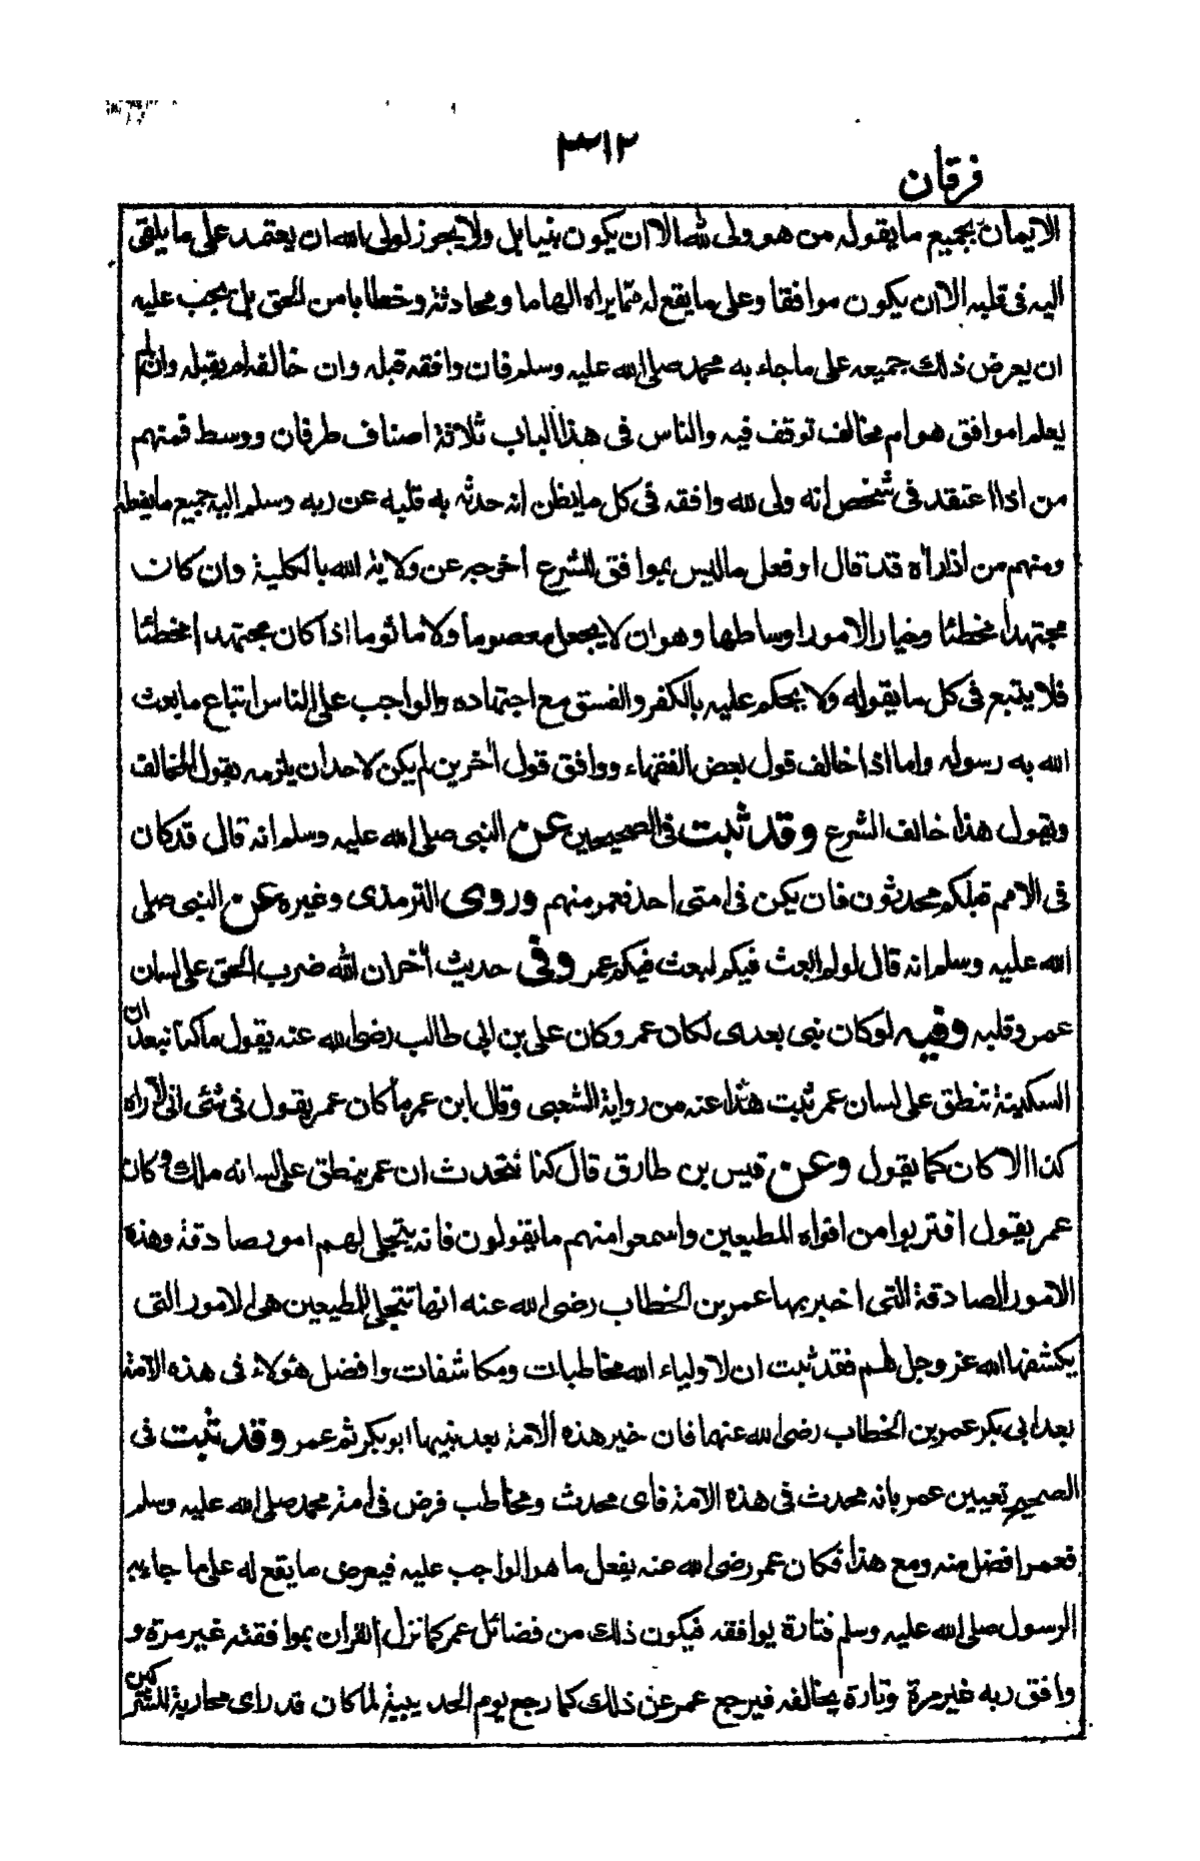 ٣١٢
فرقان
الايمان بجميع ما يقوله من هو ولى لله الا ان يكون نبيا بل ولا يجوز لولى الله ان يعتمد على ما يلقى
اليه فى قلبه الا ان يكون موافقا وعلى ما يقع له مما يراه الهاما ومحادثة وخطابا من الحق بل يجب عليه
ان يعرض ذلك جميعه على ما جاء به محمد صلى الله عليه وسلم فان وافقه قبله وان خالفه لم يقبله وان لم
يعلم اموافق هو ام مخالف توقف فيه والناس فى هذا الباب ثلاثة اصناف طرفان ووسط فمنهم
من اذا اعتقد فى شخص انه ولى لله وافقه فى كل ما يظن انه حدثه به قلبه عن ربه وسلم اليه جميع ما يفعله
ومنهم من اذا راٰه قد قال او فعل ما ليس بموافق للشرع اخرجه عن ولاية الله بالكلية وان كان
مجتهدا مخطئا وخيار الامور اوساطها وهو ان لا يجعل معصوما ولا ماثوما اذا كان مجتهدا مخطئا
فلا يتبع فى كل ما يقوله ولا يحكم عليه بالكفر والفسق مع اجتهاده والواجب على الناس اتباع ما بعث
الله به رسوله واما اذا خالف قول بعض الفقهاء ووافق قول اٰخرين لم يكن لاحد ان يلزمه بقول المخالف
ويقول هذا خالف الشرع وقد ثبت فى الصحيحين عن النبى صلى الله عليه وسلم انه قال قد كان
فى الامم قبلكم محدثون فان يكن فى امتى احد فعمر منهم وروى الترمذى وغيره عن النبى صلى
الله عليه وسلم انه قال لو لم ابعث فيكم لبعث فيكم عمر وفى حديث اٰخر ان الله ضرب الحق على لسان
عمر وقلبه وفيه لو كان نبى بعدى لكان عمر وكان على بن ابى طالب رضى الله عنه يقول ما كنا نبعد ان
السكينة تنطق على لسان عمر ثبت هذا عنه من رواية الشعبى وقال ابن عمر ما كان عمر يقول فى شئى انى لاراه
كذا الا كان كما يقول وعن قيس بن طارق قال كنا نتحدث ان عمر ينطق على لسانه ملك وكان
عمر يقول اقتربوا من افواه المطيعين واسمعوا منهم ما يقولون فانه يتجلى لهم امور صادقة وهذه
الامور الصادقة التى اخبر بها عمر بن الخطاب رضى الله عنه انها تتجلى للمطيعين هى الامور التى
يكشفها الله عز وجل لهم فقد ثبت ان لاولياء الله مخاطبات ومكاشفات وافضل هؤلاء فى هذه الامة
بعد ابى بكر عمر بن الخطاب رضى الله عنهما فان خير هذه الامة بعد نبيها ابو بكر ثم عمر وقد ثبت فى
الصحيح تعيين عمر بانه محدث فى هذه الامة فاى محدث ومخاطب فرض فى امة محمد صلى الله عليه وسلم
فعمر افضل منه ومع هذا فكان عمر رضى الله عنه يفعل ما هو الواجب عليه فيعرض ما يقع له على ما جاء به
الرسول صلى الله عليه وسلم فتارة يوافقه فيكون ذلك من فضائل عمر كما نزل القران بموافقته غير مرة و
وافق ربه غير مرة وتارة يخالفه فيرجع عمر عن ذلك كما رجع يوم الحديبية لما كان قد راى محاربة للمشركين